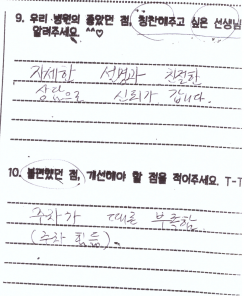 9. 우리 병원의 좋았던 점, 칭찬해주고 싶은 선생님
알려주세요. ^^♡
자세한 설명과 친절한
상담으로 신뢰가 갑니다.
10. 불편했던 점, 개선해야 할 점을 적어주세요. T-T
주차가 때론 부족함
(주차 힘듦)